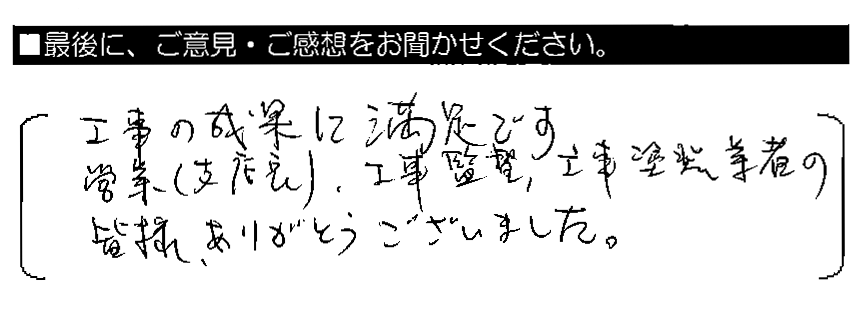 ■最後に、ご意見・ご感想をお聞かせください。
工事の成果に満足です
営業(支店長)、工事監督、工事塗装業者の
皆様、ありがとうございました。